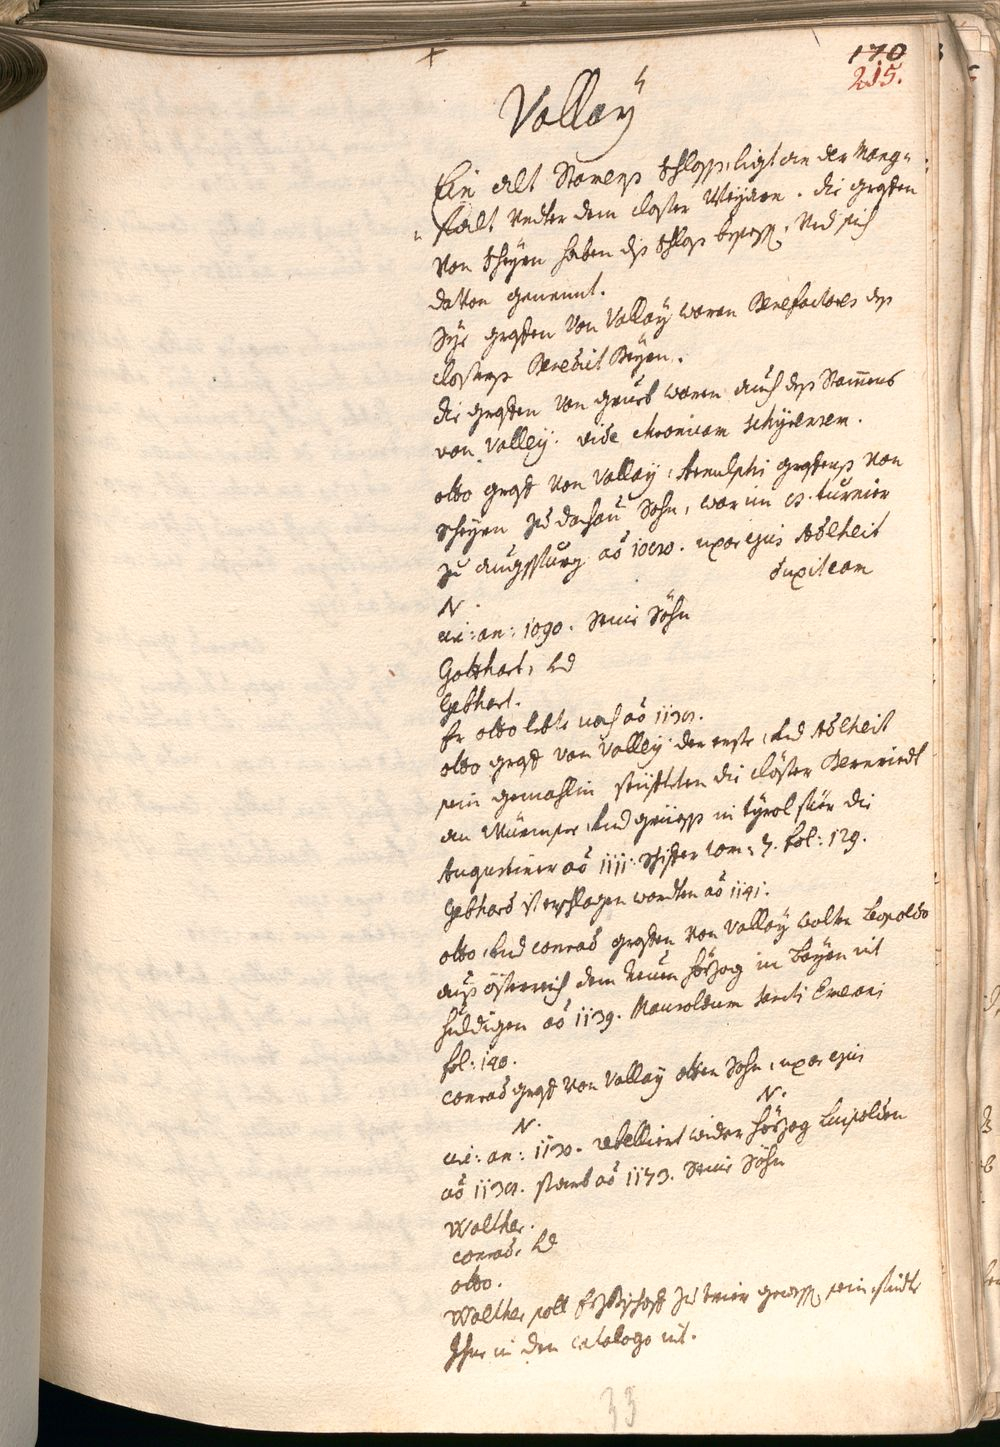 170
215.
Vallaÿ
Ein alt Stamens Schloss, ligt an der Mang-
falt Vndter dem closter Weÿarn. die graffen
Von Scheÿrn haben diss Schloss besessen, Vnd sich
dauon genennt.
Dise graffen Von Vallaÿ waren Benefactores des
closters Benedict Beÿrn.
die graffen Von grueb waren auch dess Stammens
von Valleÿ. vide chronicam schÿrensem.
otto graff Von Vallaÿ, Arnulphi graffens Von
Scheÿrn zu dachau Sohn, war im 9. turnier
zu augspurg aō 1080. uxor ejus Adlheit
duxit eam
N.
circ: an: 1090. Seine Söhn
Gotthart, Vnd
Gebhart.
Er otto lebte noch aō 1130.
otto graff von Valleÿ der erste, Vnd Adlheit
sein gemahlin stüffteten die clöster Bernriedt
am Würmsee, Vnd grieß in tÿrol für die
Augustiner aō 1111. tom: 3. fol: 129.
Gebhard ist erschlagen wordten aō 1141.
otto, Vnd conrad graffen Von Vallaÿ wolten Leopoldo
auß österreich dem Neuen Hörzog in Baÿrn nit
huldigen aō 1139. Mausoleum sancti Emerani
fol: 140.
conrad graff Von Vallaÿ otten Sohn, uxor ejus
N.
N.
circ: an: 1130. rebelliert wider Hörzog Leupolden
aō 1139. starb aō 1173. Seine Söhn
Walther.
conrad, Vnd
otto.
Walther soll Erzbischoff zu trier gewesen sein, findte
Ihne in den catalogo nit.
33